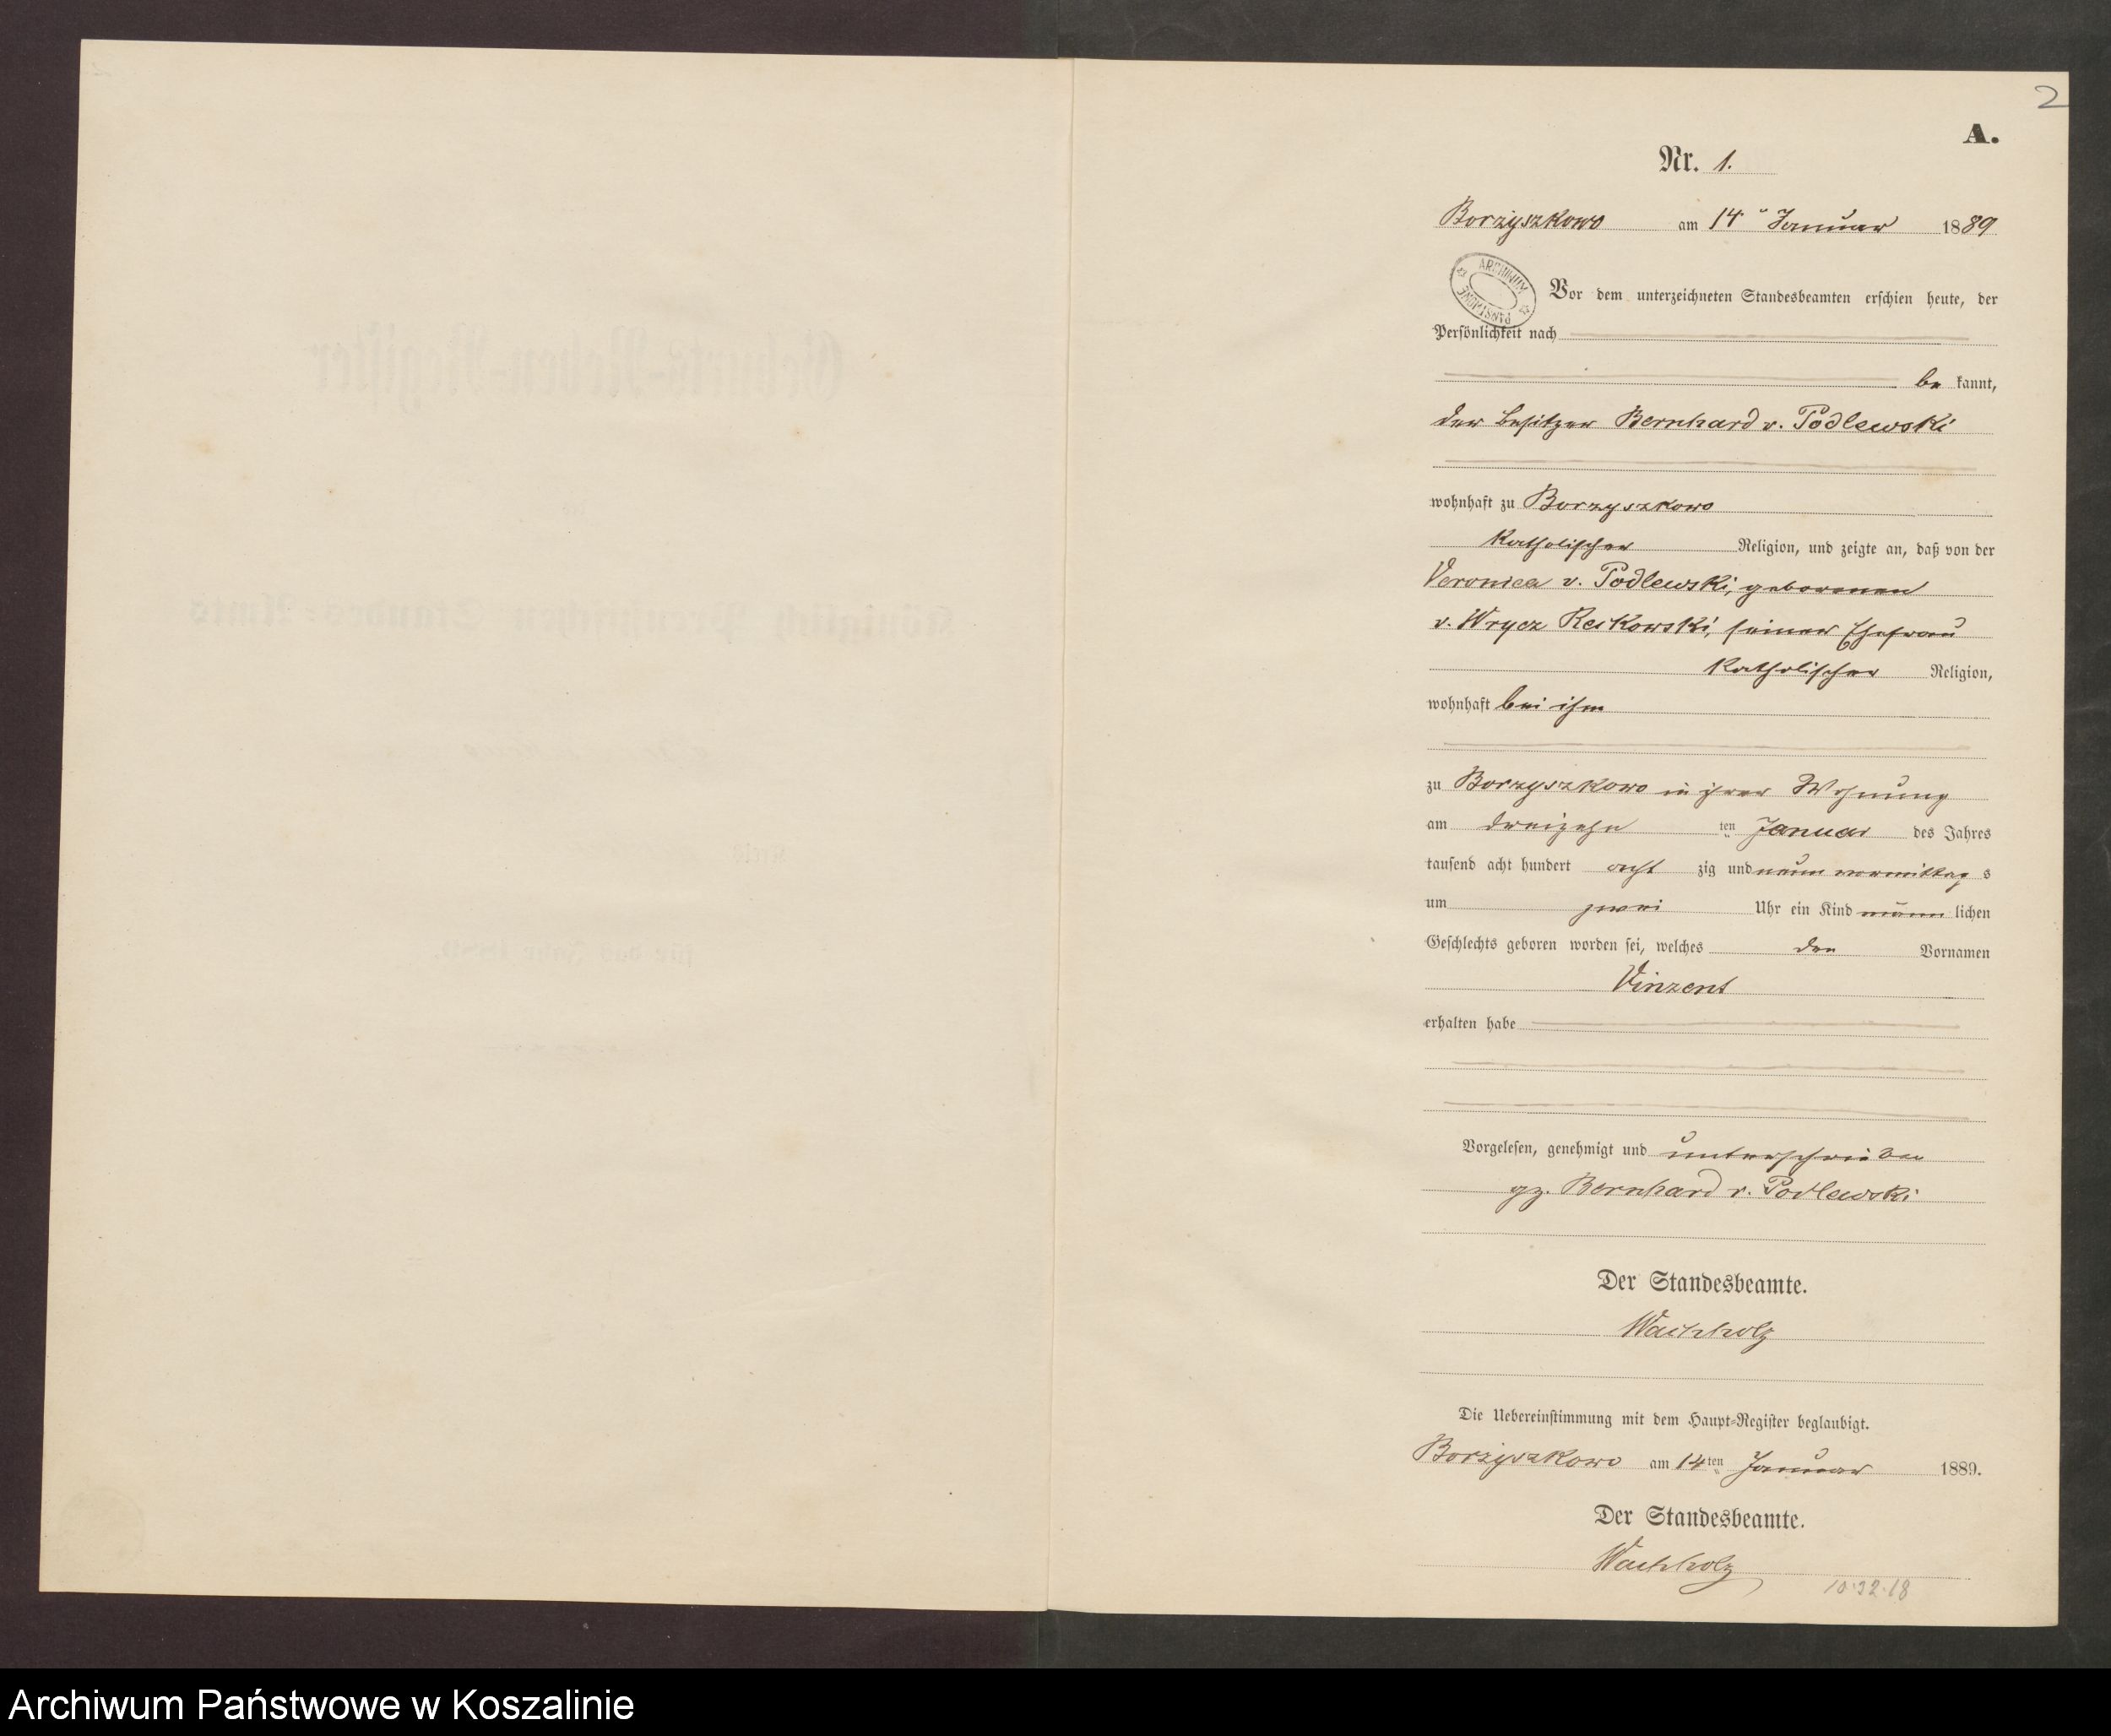 2
A.
Nr. 1.
Borzyszkowo am 14ᵗ Januar 1889
ARCHIWUM PAŃSTWOWE
Vor dem unterzeichneten Standesbeamten erschien heute, der
Persönlichkeit nach
be kannt,
der Besitzer Bernhard v. Podlewski
wohnhaft zu Borzyszkowo
katholischer Religion, und zeigte an, daß von der
Veronica v. Podlewski, geborenen
v. Wrycz Reikowski, seiner Ehefrau
katholischer Religion,
wohnhaft bei ihm
zu Borzyszkowo in ihrer Wohnung
am dreizehn ten Januar des Jahres
tausend acht hundert acht zig und neun vormittag s
um zwei Uhr ein Kind männ lichen
Geschlechts geboren worden sei, welches den Vornamen
Vinzent
erhalten habe
Vorgelesen, genehmigt und unterschrieben
gz. Bernhard v. Podlewski
Der Standesbeamte.
Wachholz
Die Uebereinstimmung mit dem Haupt-Register beglaubigt.
Borzyszkowo am 14ten Januar 1889.
Der Standesbeamte.
Wachholz
10.32.18
Geburts-Neben-Register
des
Königlich Preußischen Standes-Amts
Kreis
für das Jahr 1889.
Archiwum Państwowe w Koszalinie